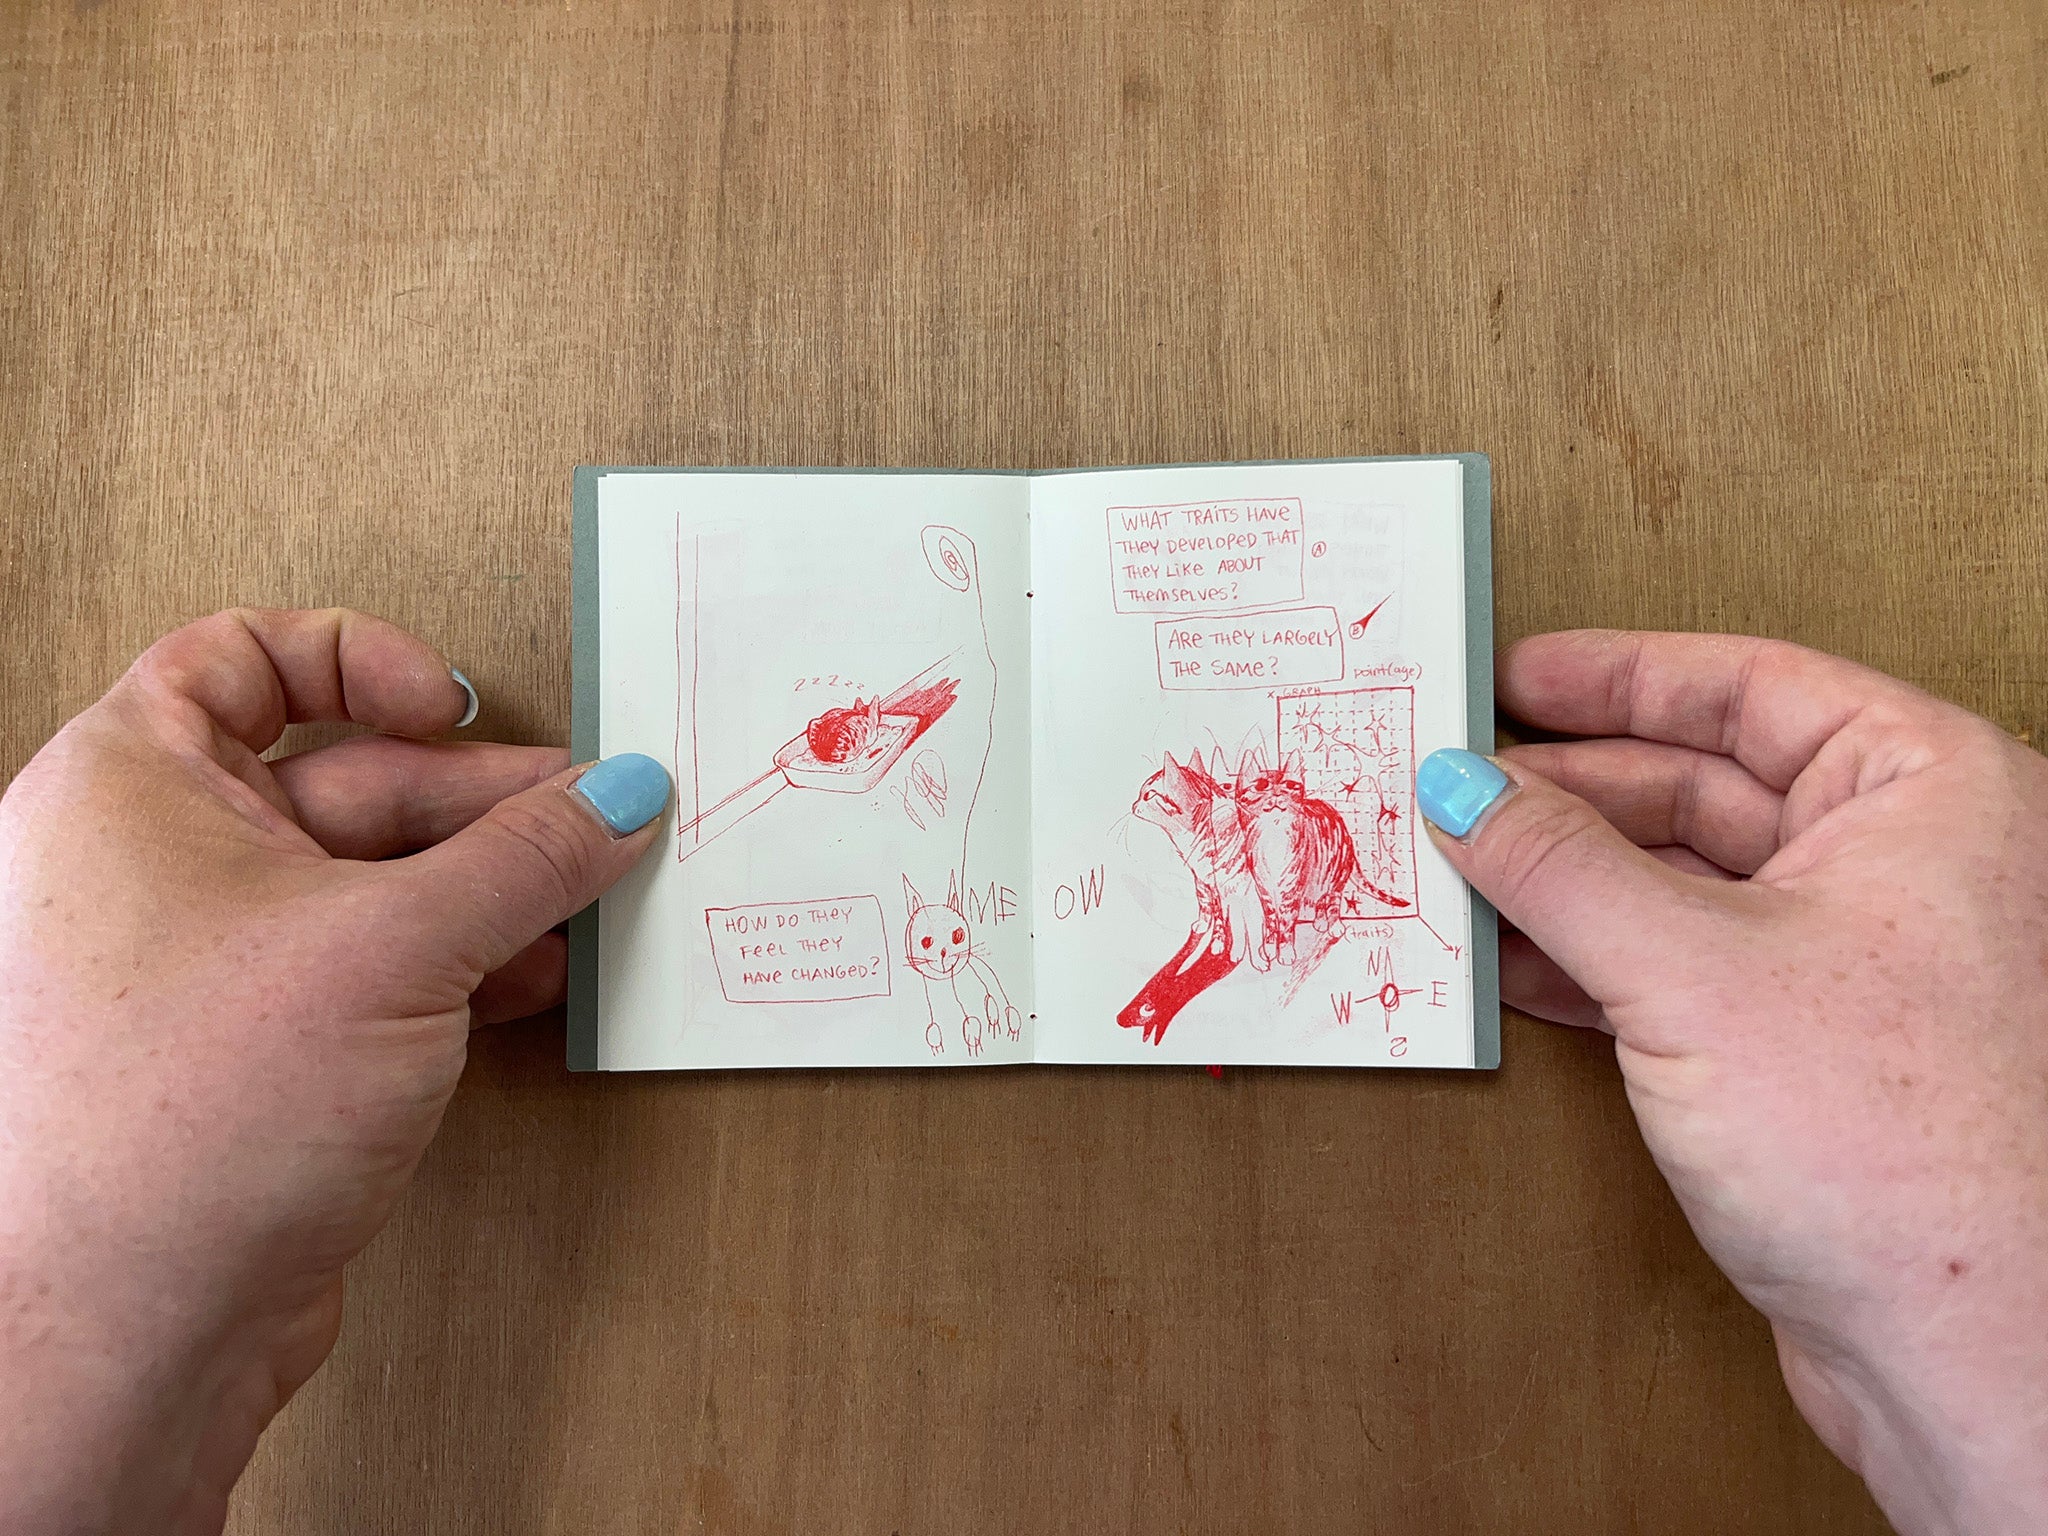 ZZZzz
HOW DO THEY
FEEL THEY
HAVE CHANGED?
ME
OW
WHAT TRAITS HAVE
THEY DEVELOPED THAT
THEY LIKE ABOUT
THEMSELVES?
A
ARE THEY LARGELY
THE SAME?
B
point(age)
X GRAPH
(traits)
Y
N
W E
S